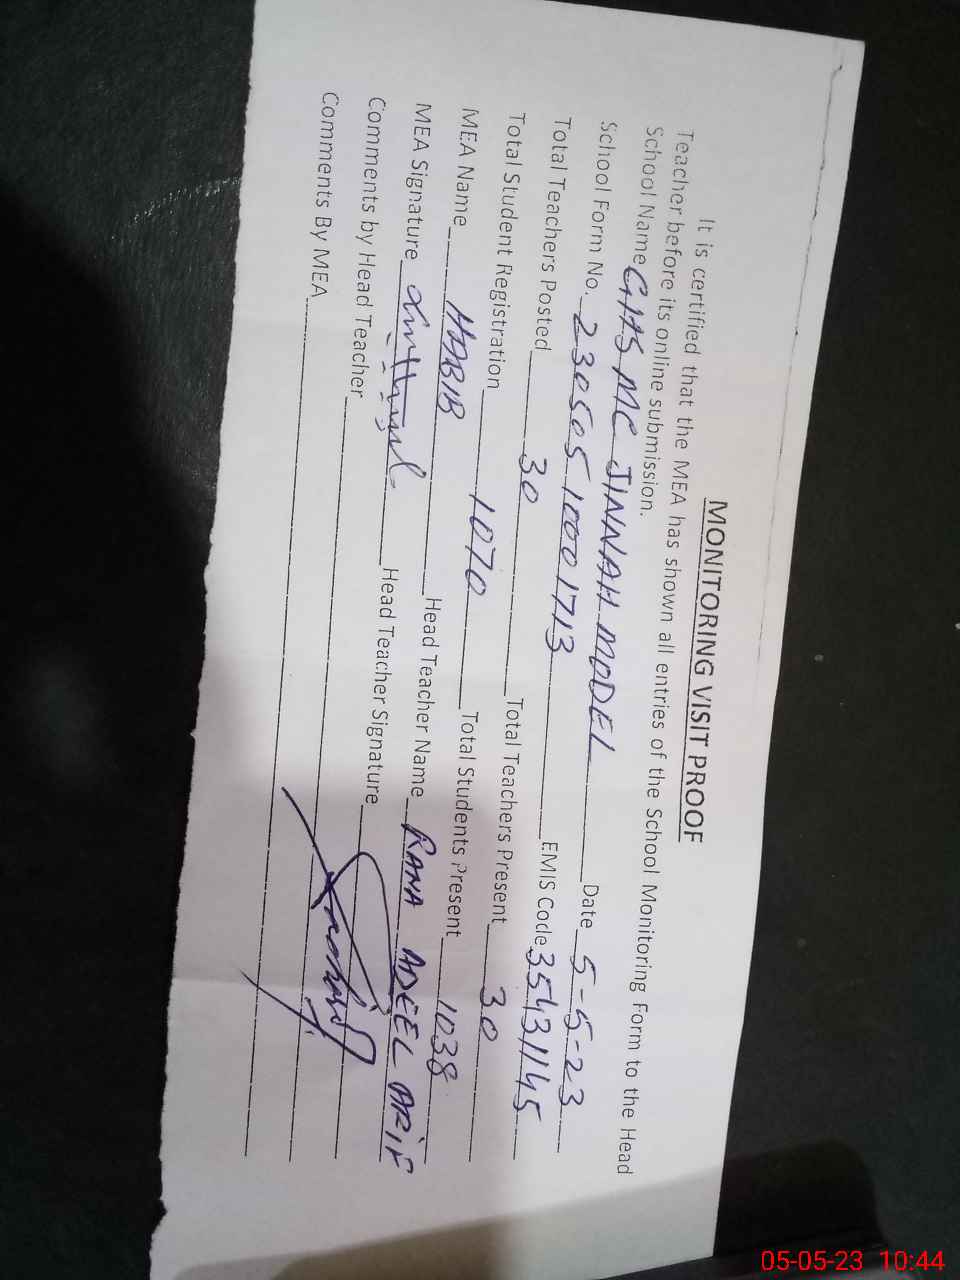 MONITORING VISIT PROOF
It is certified that the MEA has shown all entries of the School Monitoring Form to the Head
Teacher before its online submission.
School Name GHS MC JINNAH MODEL Date 5-5-23
School Form No. 230505 10001713 EMIS Code 35431145
Total Teachers Posted 30 Total Teachers Present 30
Total Student Registration 1070 Total Students Present 1038
MEA Name HABIB Head Teacher Name RANA ADEEL ARIF
MEA Signature Head Teacher Signature
Comments by Head Teacher
Comments By MEA
05-05-23 10:44